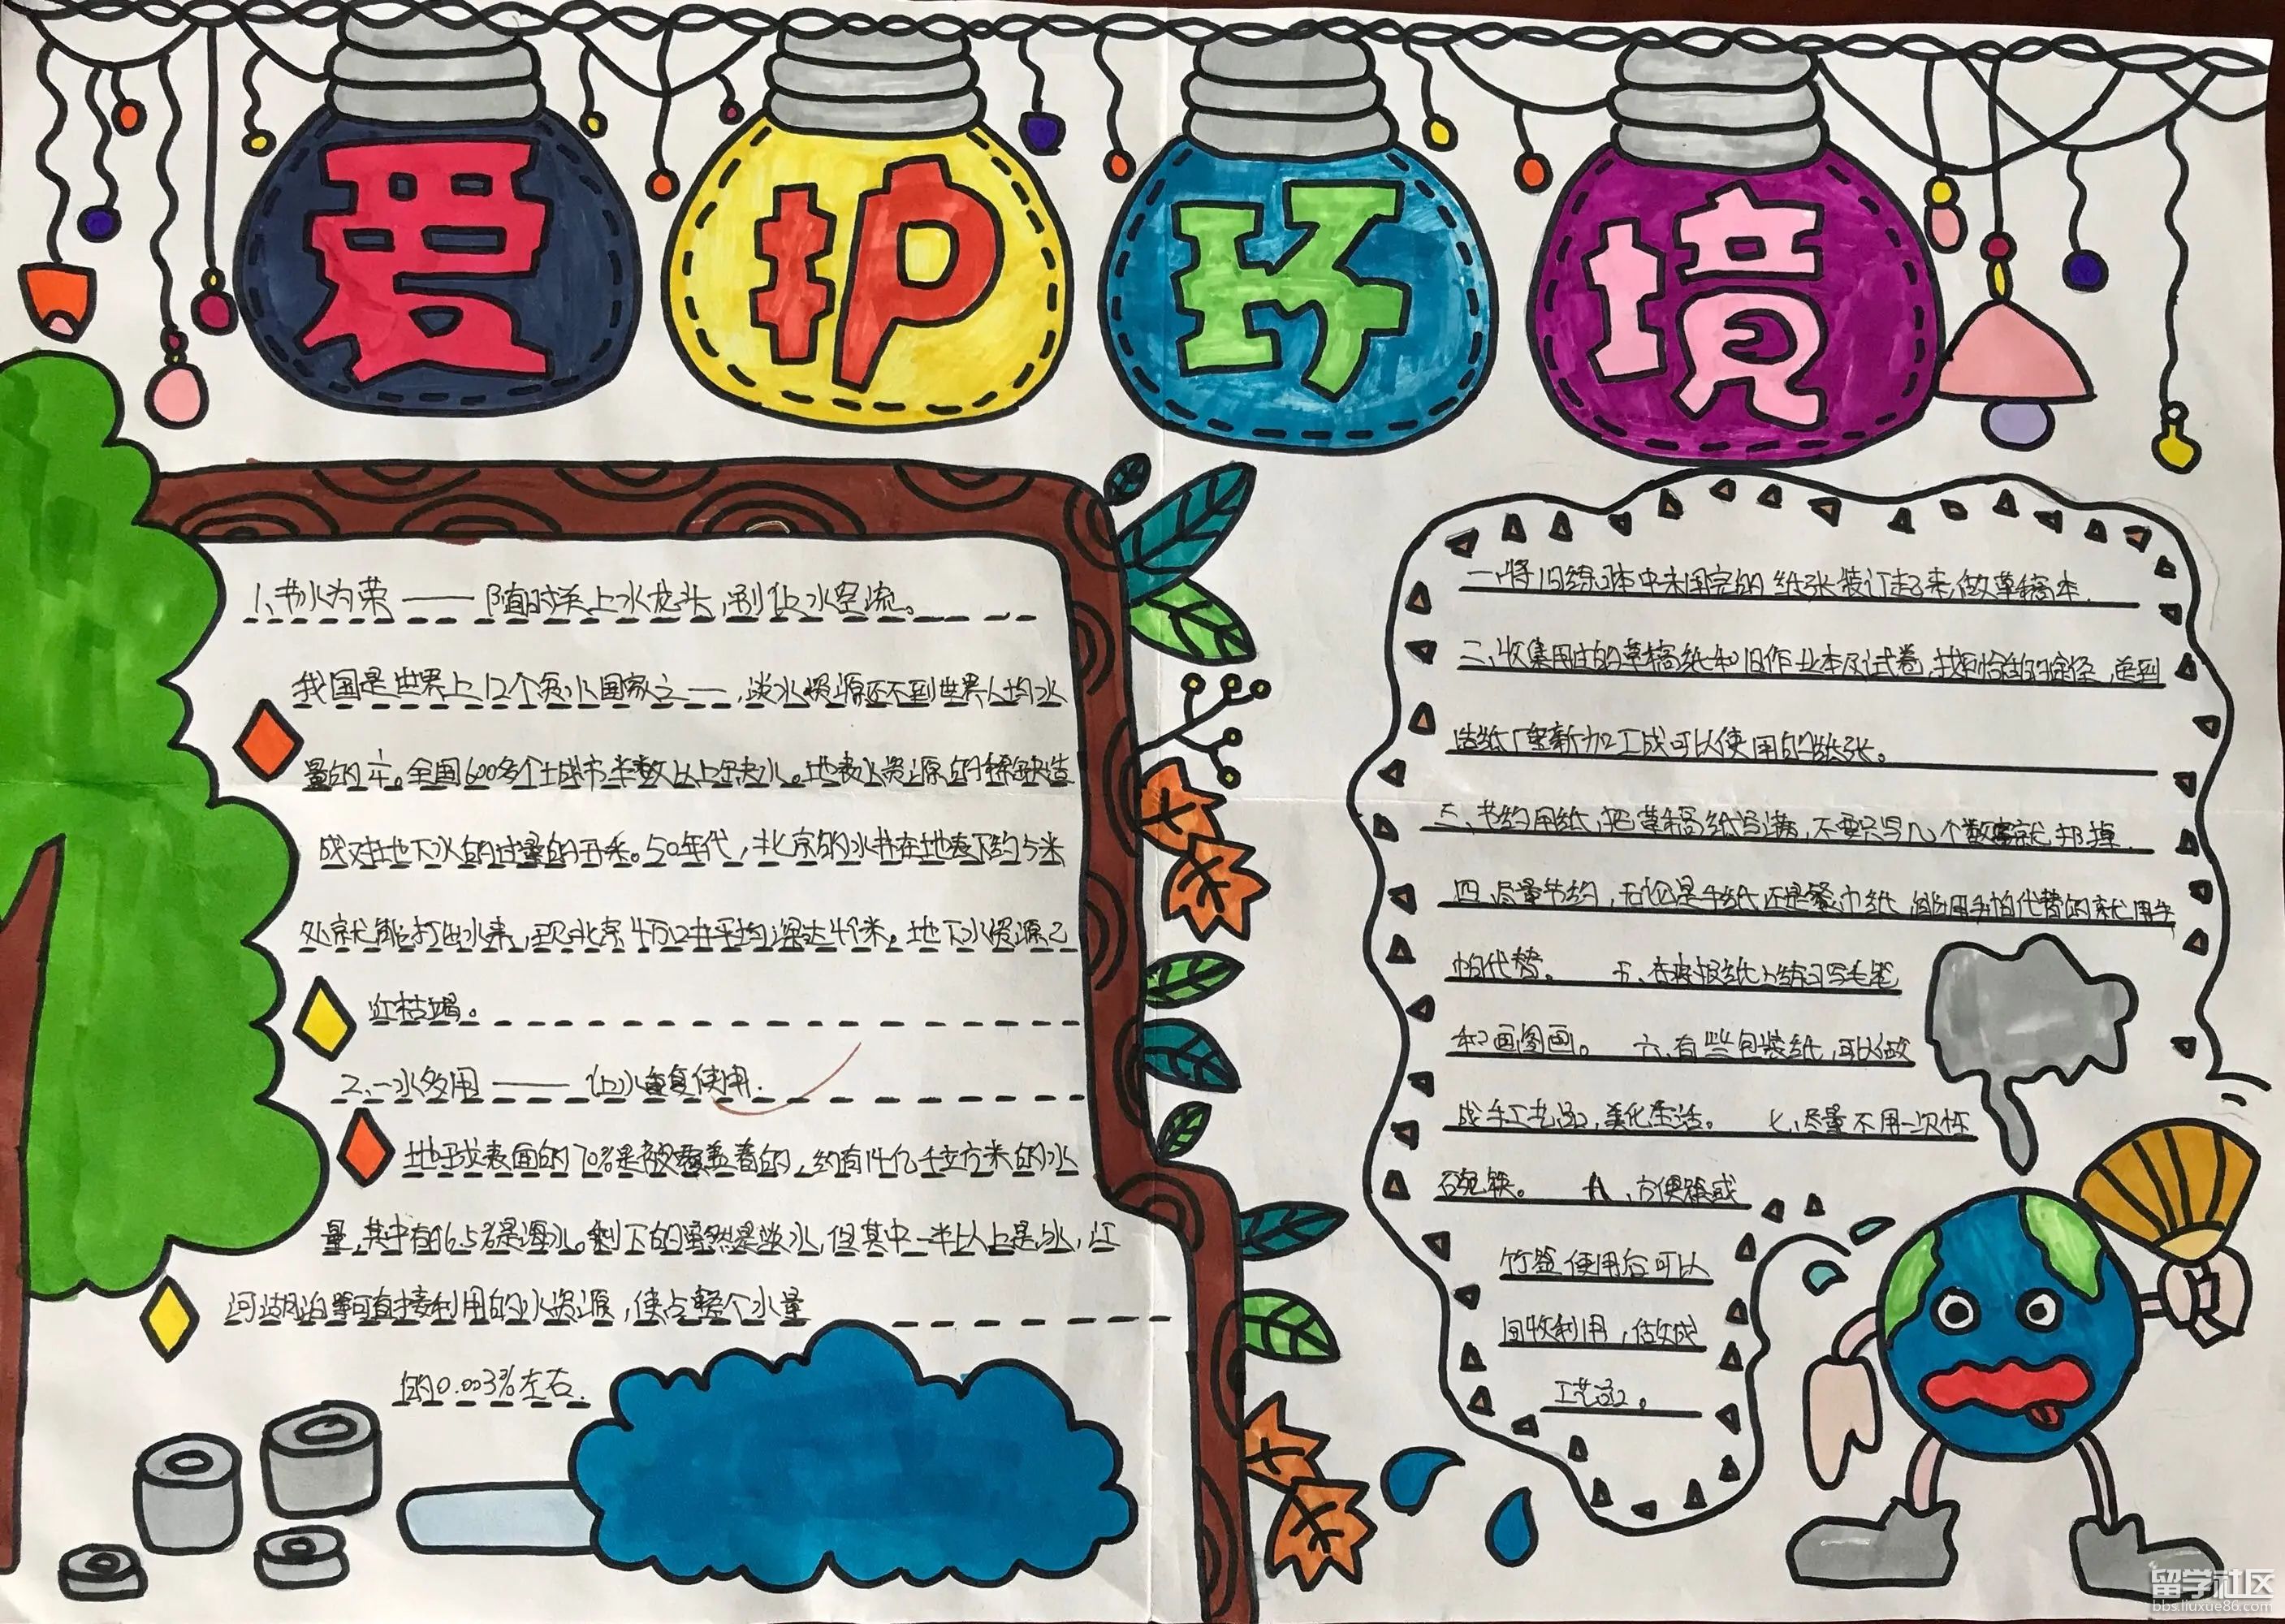 爱护环境
1、节水为荣——随时关上水龙头,别让水空流。
我国是世界上12个贫水国家之一,淡水资源还不到世界人均水
量的 。全国600多个城市半数以上缺水。地表水资源的稀缺造
成对地下水的过量的开采。50年代,北京的水井在地表下约5米
处就能打出水来,现北京4万口井平均深达49米。地下水资源已
近枯竭。
2、一水多用——让水重复使用.
地球表面的70%是被覆盖着的,约有14亿千立方米的水
量,其中有96.5%是海水。剩下的虽然是淡水,但其中一半以上是冰,江
河湖泊等可直接利用的水资源,使占整个水量
的0.003%左右.
一、将旧练习本中未用完的纸张装订起来,做草稿本.
二、收集用过的草稿纸和旧作业本及试卷,找 恰 的途径,送到
造纸厂重新加工成可以使用的纸张。
三、节约用纸,把草稿纸写满,不要只写几个数字就扔掉.
四、尽量节约,无论是手纸还是餐巾纸,能用手帕代替的就用手
帕代替。 五、在废报纸上练习写毛笔
和画图画。 六、有些包装纸,可以做
成手工艺品,美化生活。 七、尽量不用一次性
碗筷。 八、方便筷或
竹签使用后可以
回收利用, 做成
工艺品。
留学社区
bbs.liuxue86.com